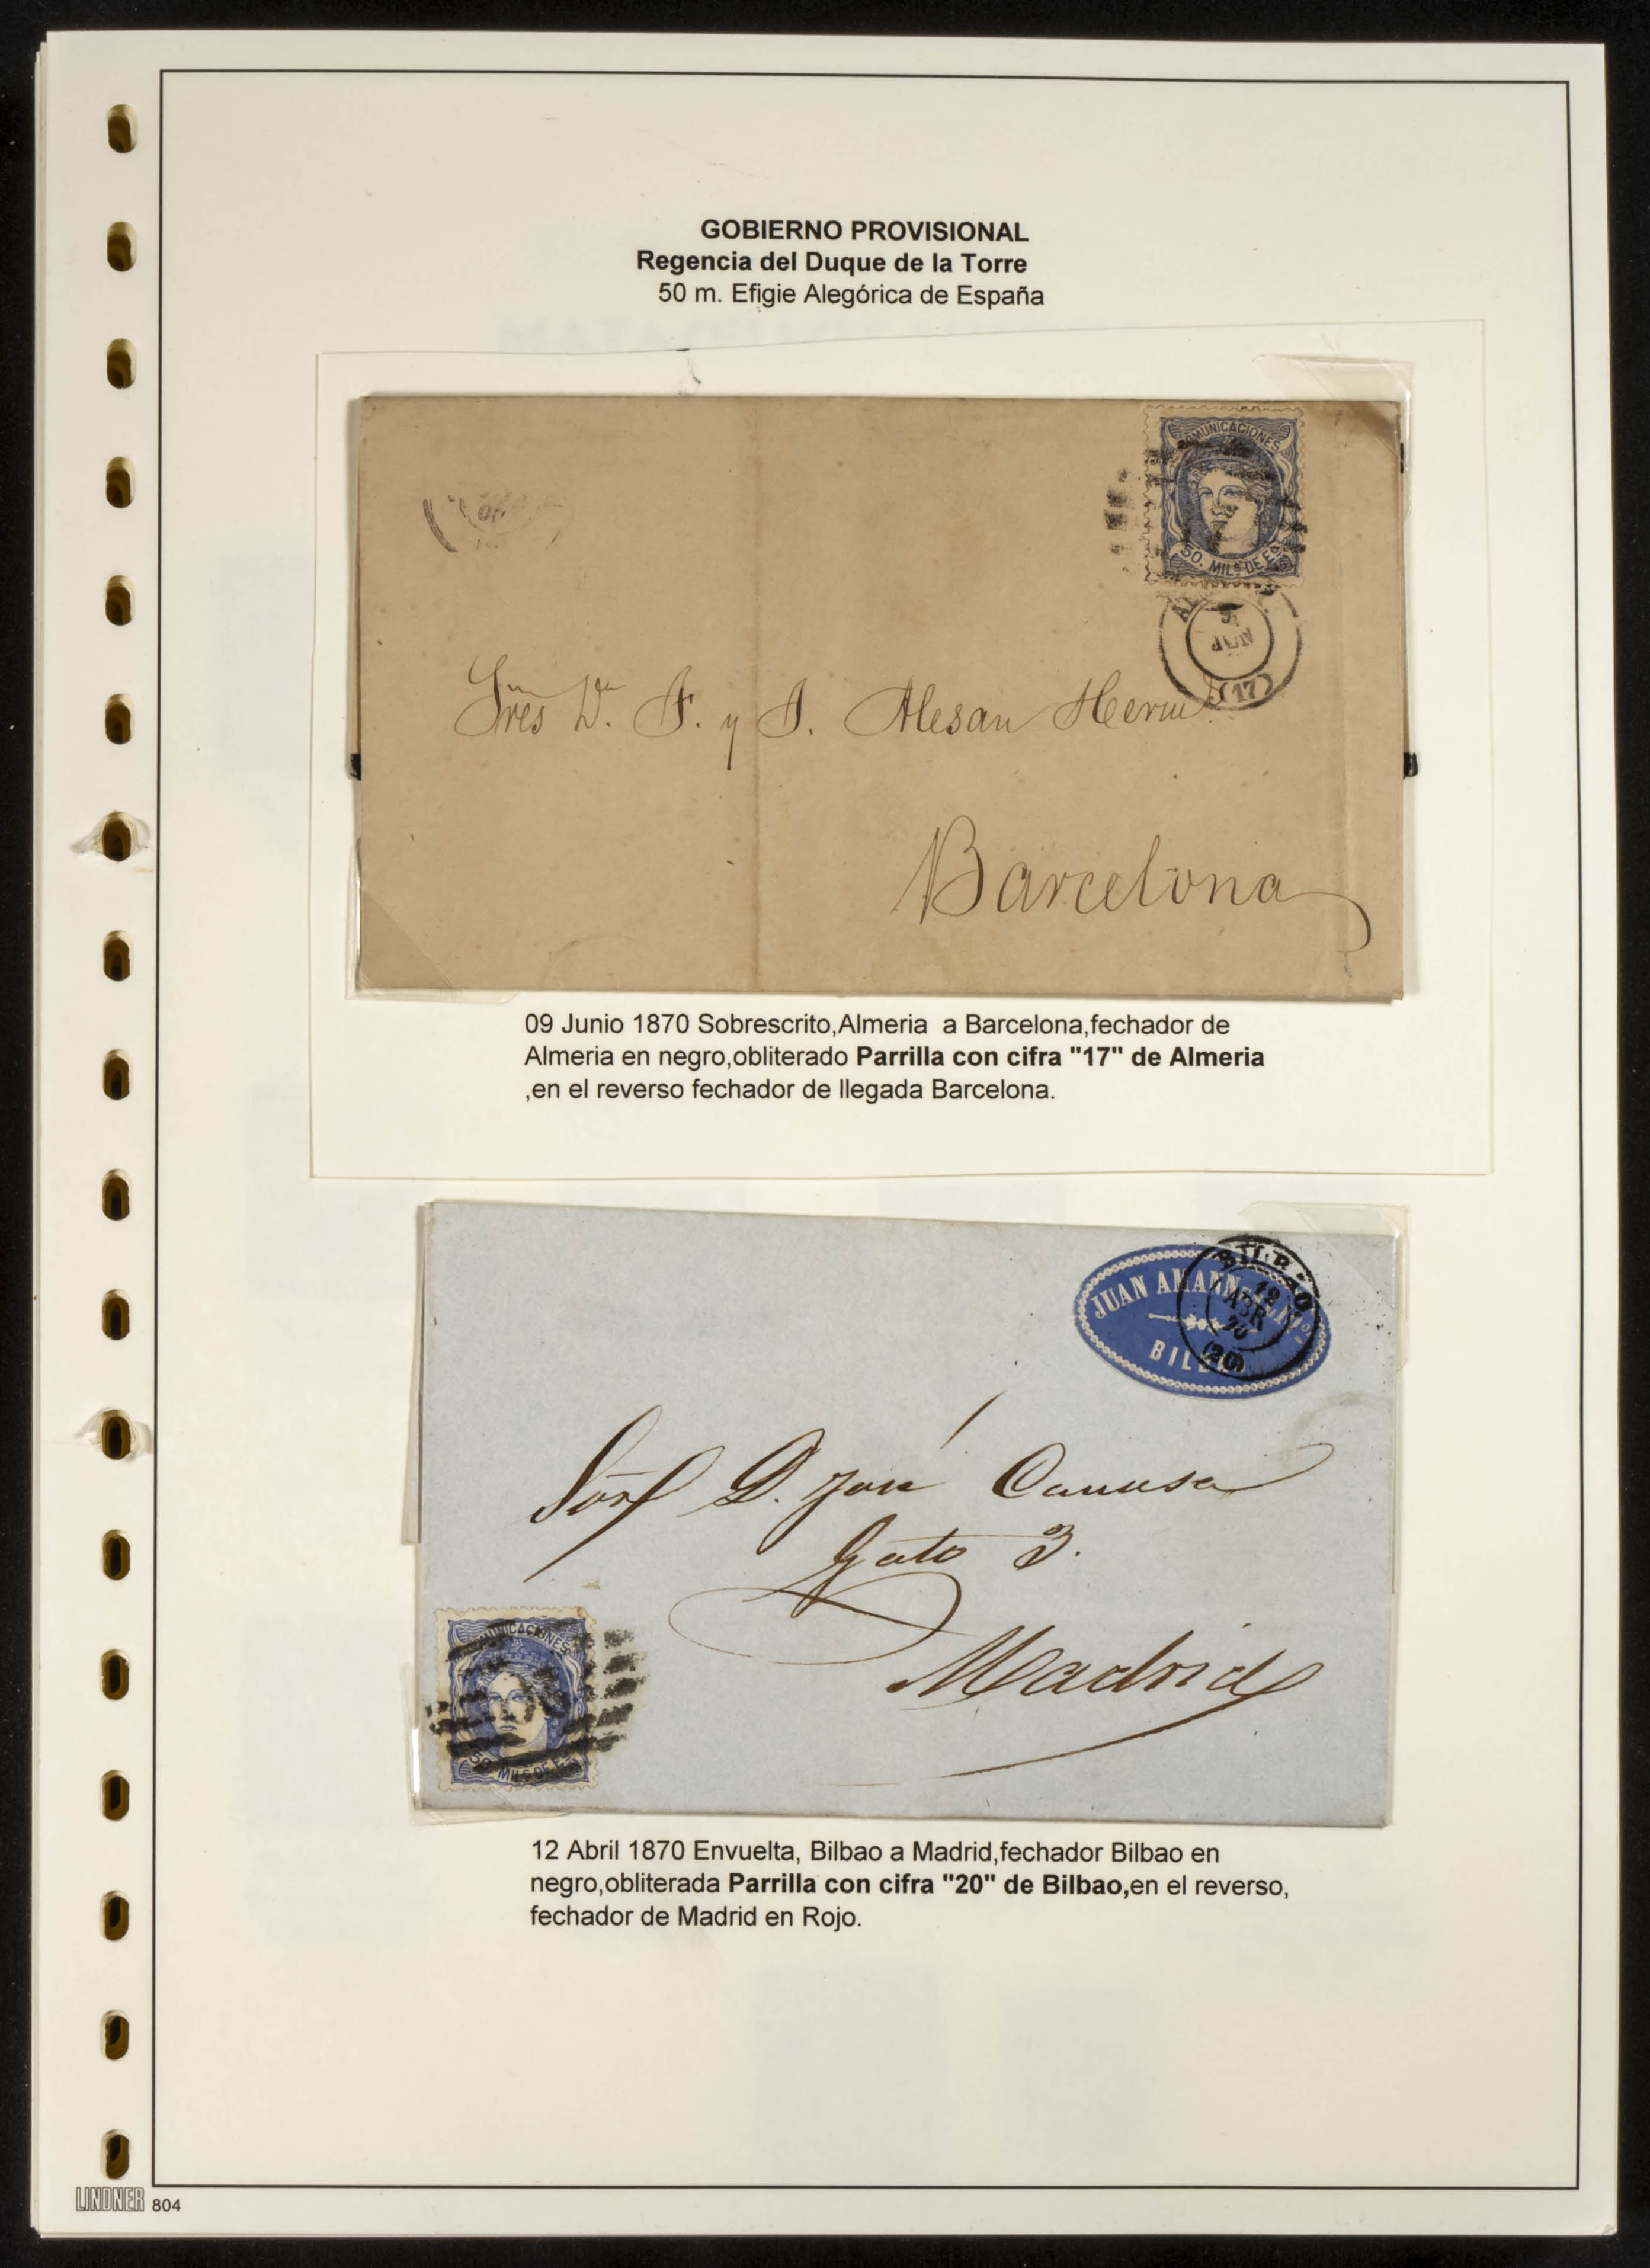 GOBIERNO PROVISIONAL
Regencia del Duque de la Torre
50 m. Efigie Alegórica de España
COMUNICACIONES
50. MILS DE
JUN
(17)
Sres D. F. y J. Alesan Herm
Barcelona
09 Junio 1870 Sobrescrito,Almeria a Barcelona,fechador de
Almeria en negro,obliterado Parrilla con cifra "17" de Almeria
,en el reverso fechador de llegada Barcelona.
BILBAO
12
ABR
70
(20)
JUAN AMANN
Sor D. José
Gato 3.
Madrid
COMUNICACIONES
50 MILS DE
12 Abril 1870 Envuelta, Bilbao a Madrid,fechador Bilbao en
negro,obliterada Parrilla con cifra "20" de Bilbao,en el reverso,
fechador de Madrid en Rojo.
LINDNER 804